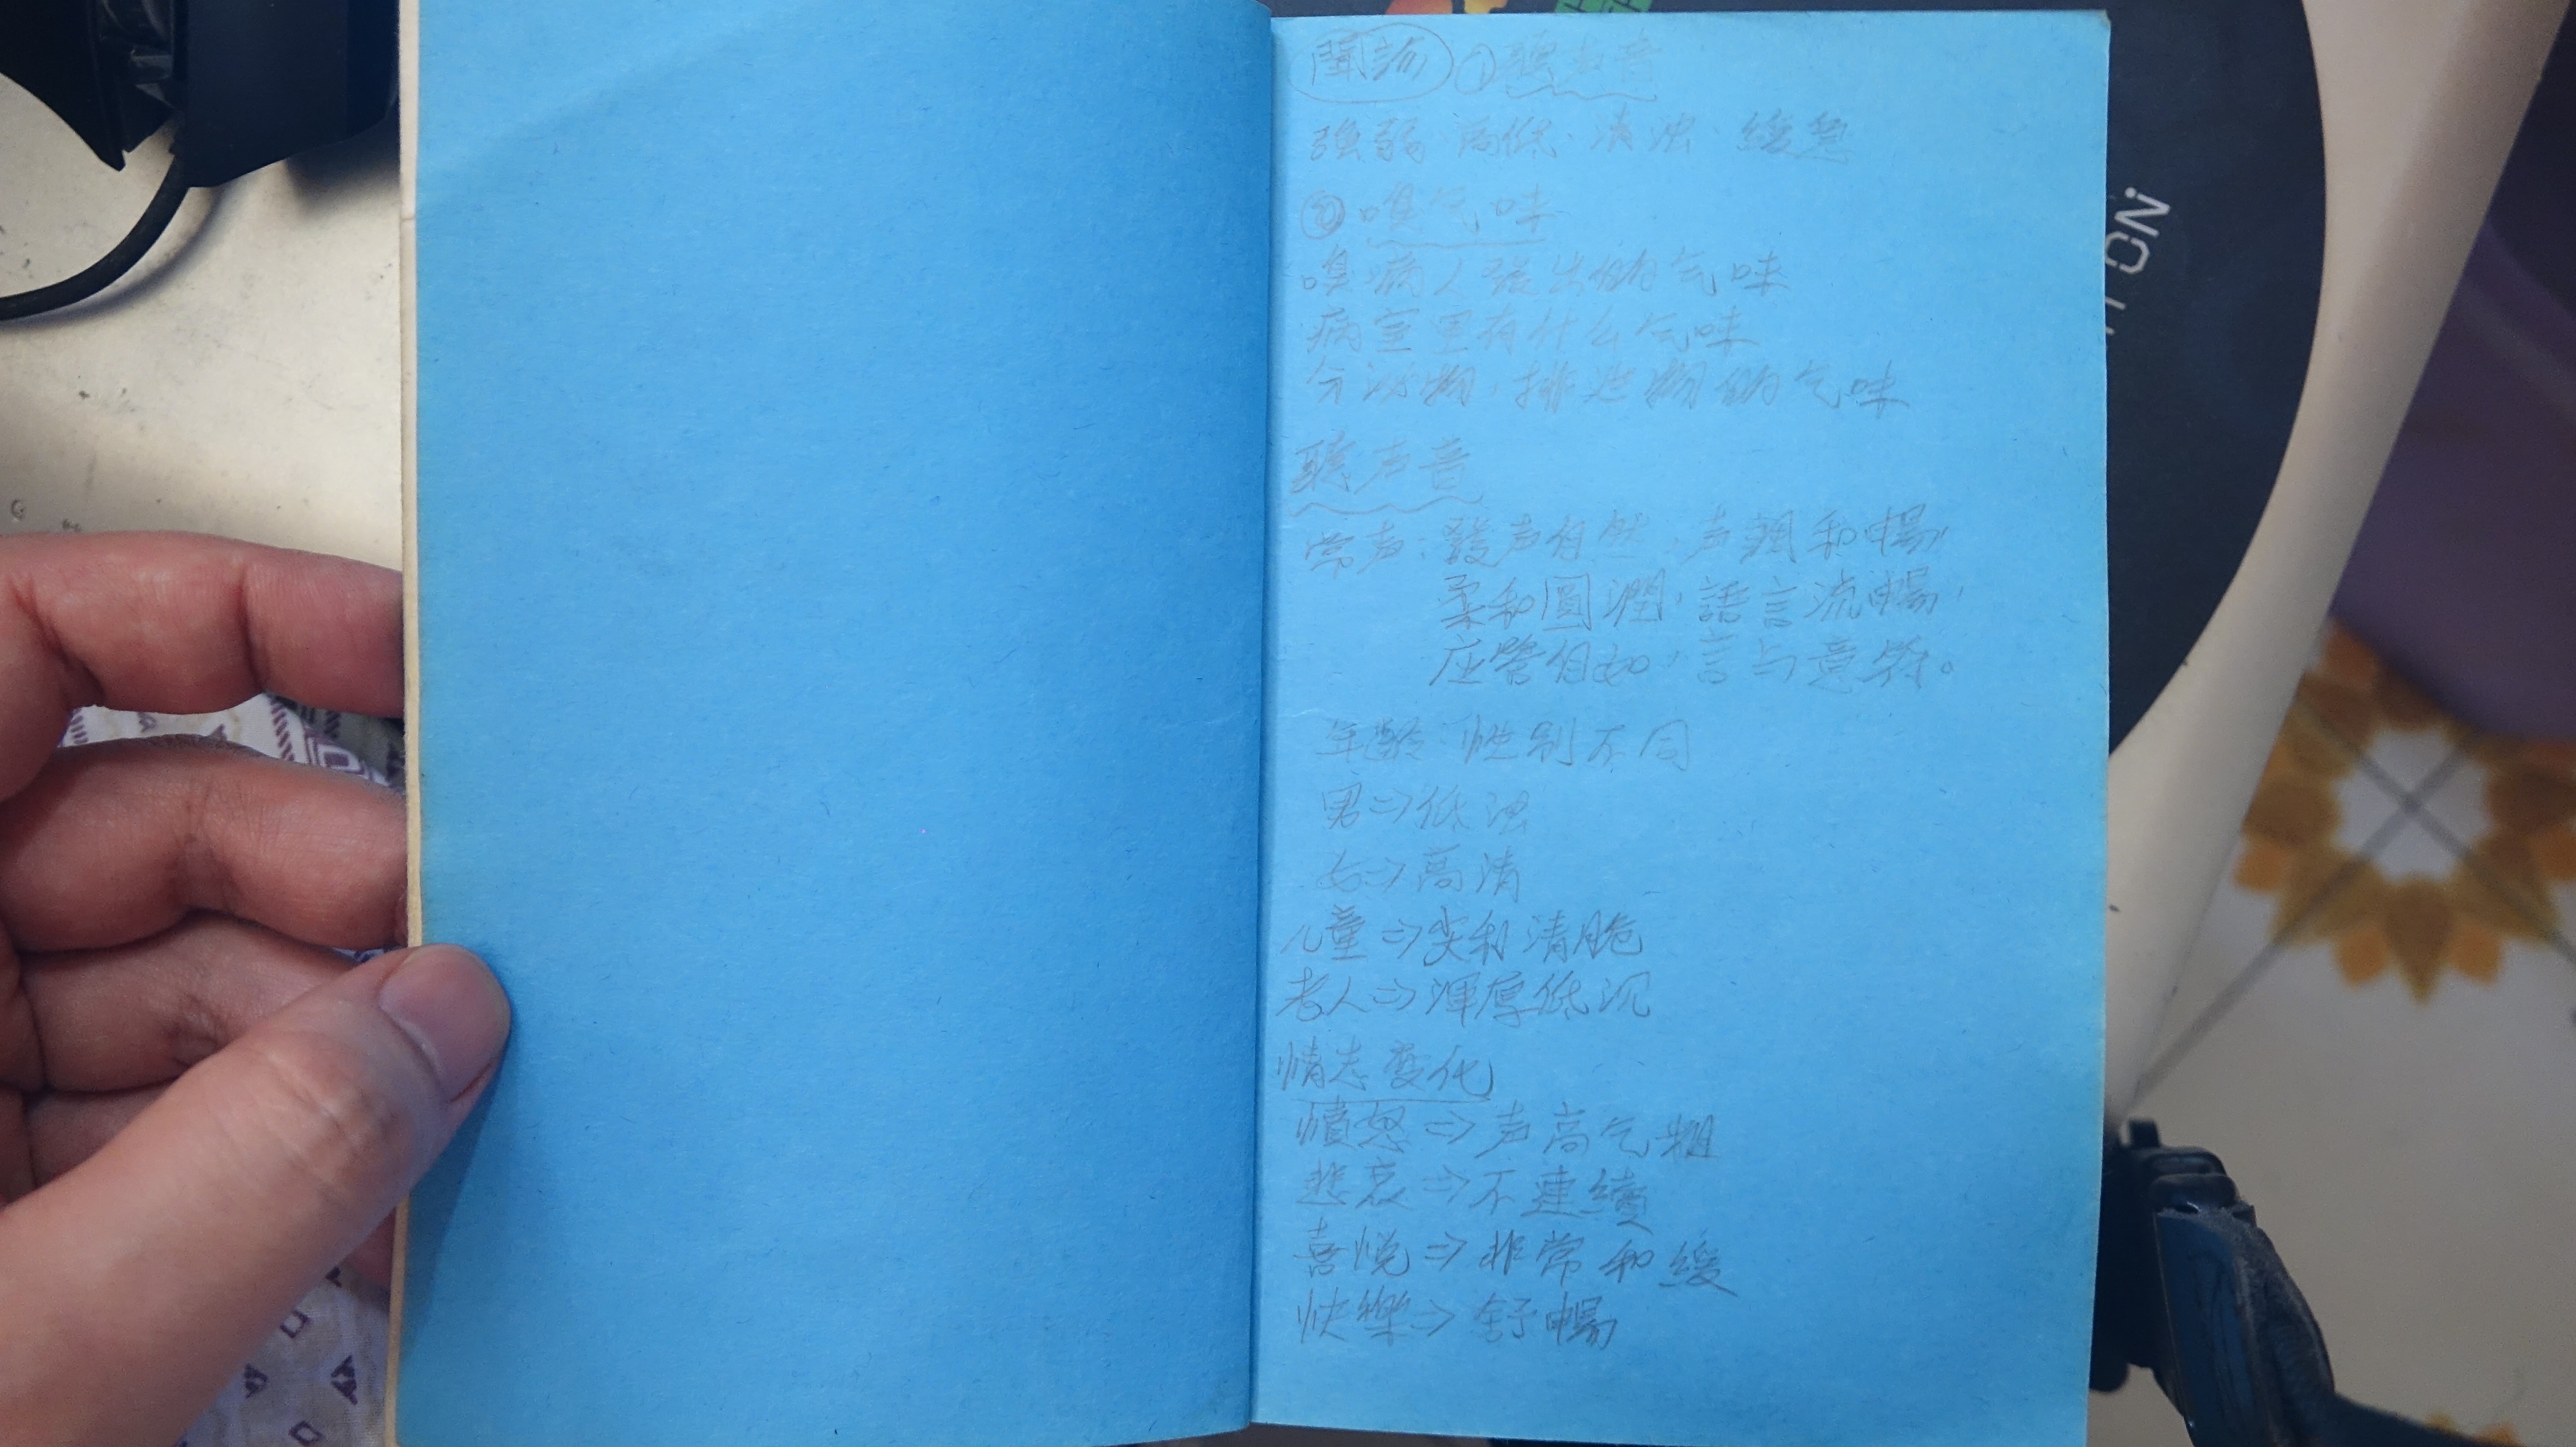 聞診 ①聽声音
強弱、高低、清浊、緩急
② 嗅气味
嗅病人發出的气味
病室里有什么气味
分泌物、排泄物的气味
聽声音
常声：發声自然，声調和暢，
柔和圓潤，語言流暢，
应答自如，言与意符。
年齡、性別不同
男⇒低浊
女⇒高清
儿童⇒尖利清脆
老人⇒渾厚低沉
情志变化
憤怒⇒声高气粗
悲哀⇒不連續
喜悅⇒非常和緩
快樂⇒舒暢
ON